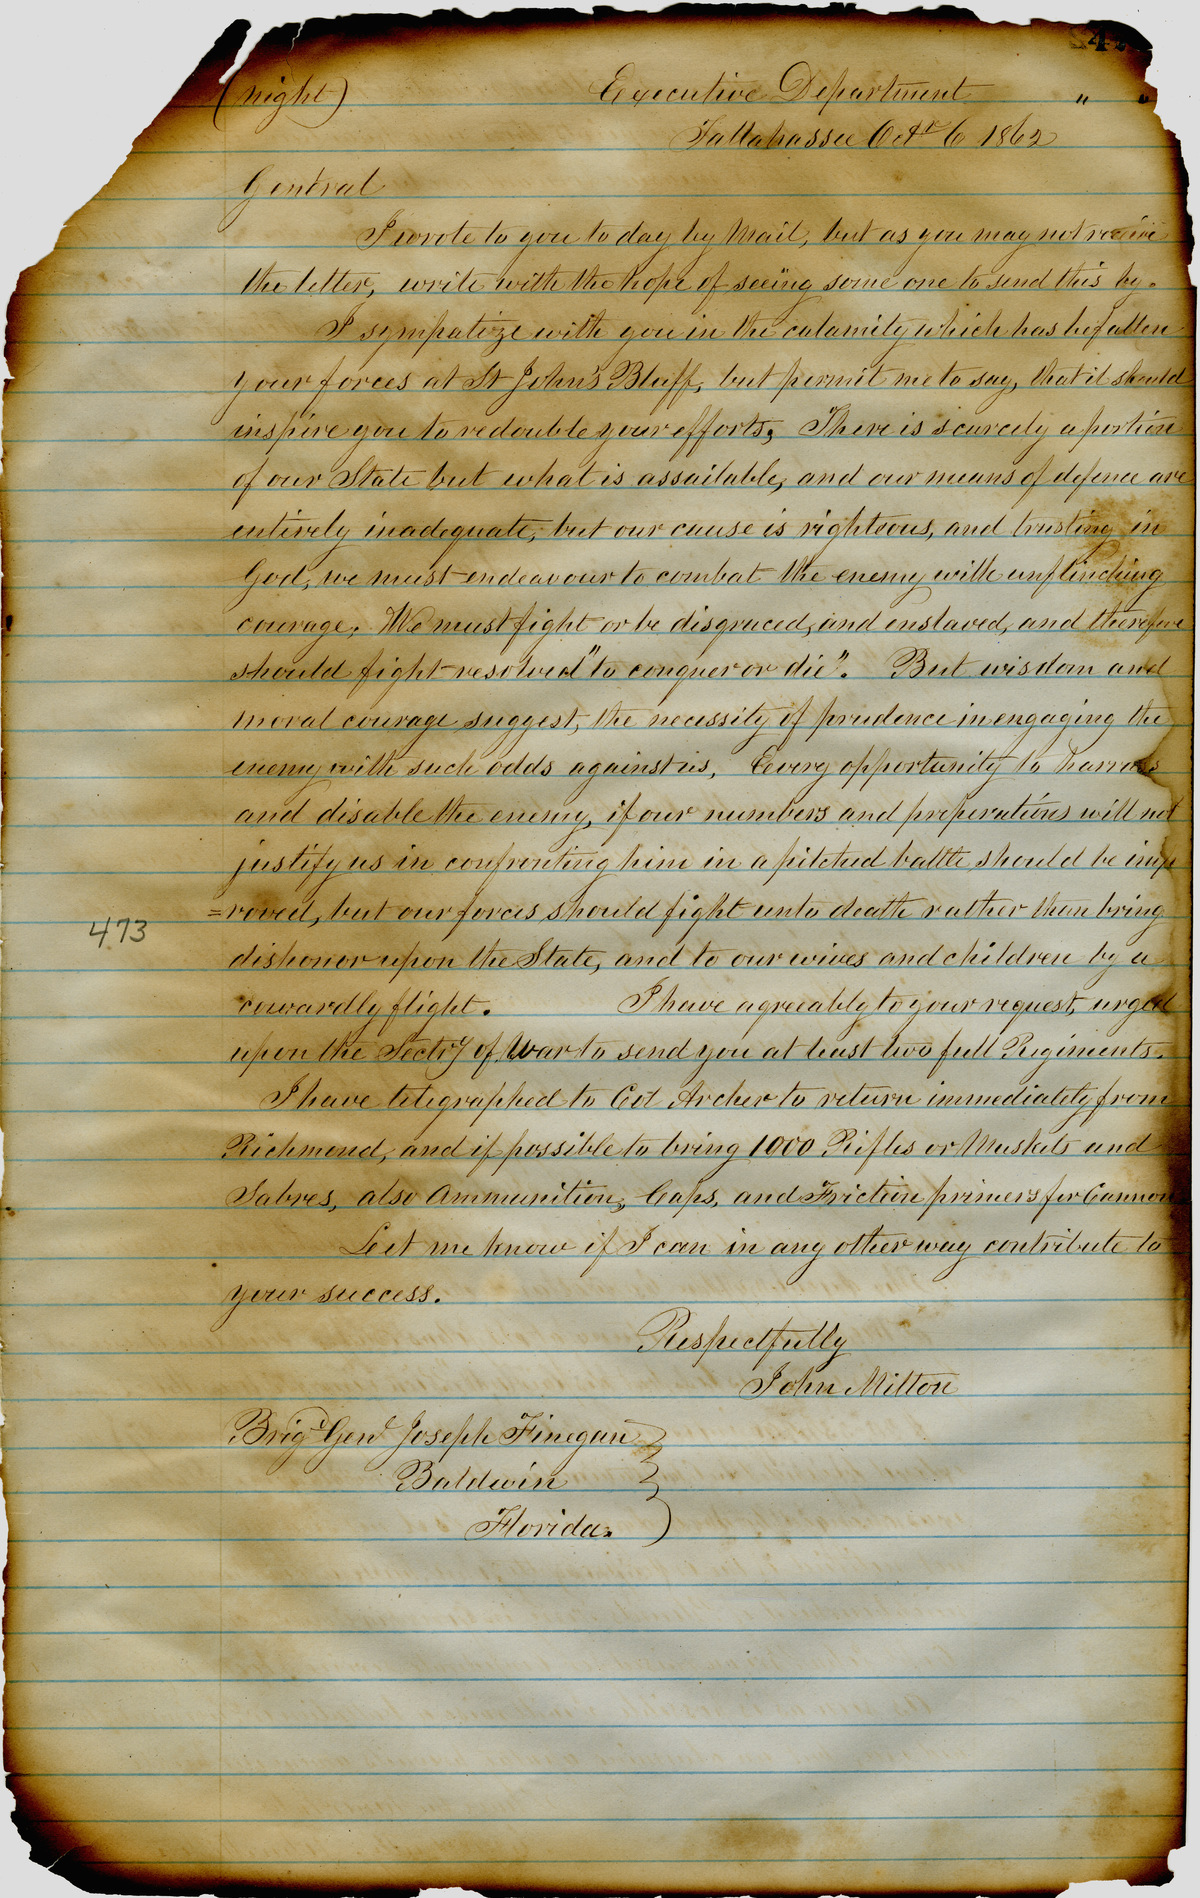 (night) Executive Department " "
Tallahassee Octr 6 1862
General
I wrote to you to day by Mail, but as you may not receive
the letter, write with the hope of seeing some one to send this by.
I sympatize with you in the calamity which has befallen
your forces at St John's Bluff, but permit me to say, that it should
inspire you to redouble your efforts; There is scarcely a portion
of our State but what is assailable, and our means of defence are
entirely inadequate, but our cause is righteous, and trusting in
God, we must endeavour to combat the enemy with unflinching
courage. We must fight or be disgraced, and enslaved, and therefore
should fight resolved "to conquer or die". But wisdom and
moral courage suggest, the necessity of prudence in engaging the
enemy with such odds against us, Every opportunity to harrass
and disable the enemy, if our numbers and preperations will not
justify us in confronting him in a pitched battle should be imp
=roved, but our forces should fight unto death rather than bring
473
dishonor upon the State, and to our wives and children by a
cowardly flight. I have agreeably to your request, urged
upon the Secty of War to send you at least two full Regiments.
I have telegraphed to Col Archer to return immediately from
Richmond, and if possible to bring 1000 Rifles or Muskets and
Sabres, also Ammunition, Caps, and Friction primers for Cannon
Let me know if I can in any other way contribute to
your success.
Respectfully
John Milton
Brigd Genl Joseph Finegan
Baldwin
Florida.